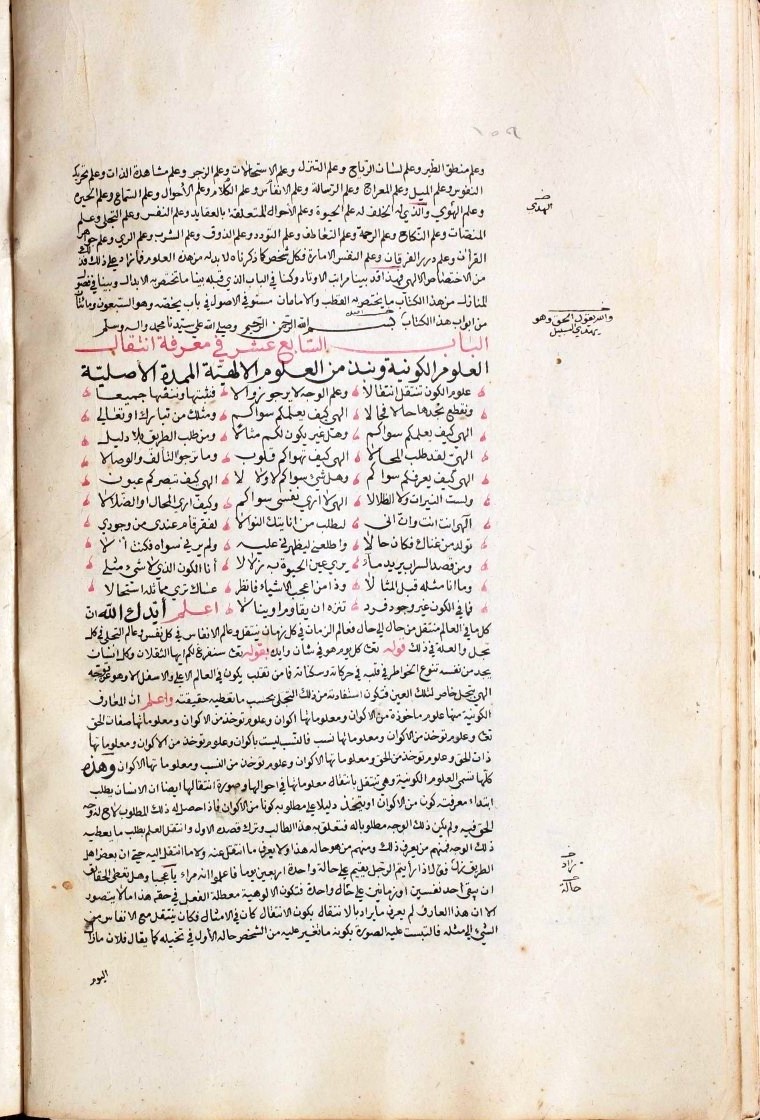 ١٥٩
وعلم منطق الطير وعلم لسان الرياح وعلم التنزل وعلم الاستحالات وعلم الزجر وعلم مشاهدة الذات وعلم تحريك
النفوس وعلم الميل وعلم المعراج وعلم الرسالة وعلم الانفاس وعلم الكلام وعلم الأحوال وعلم السماع وعلم الحيرة
وعلم الهوى والذي له الخلف له علم الحيوة وعلم الأحوال المتعلقة بالعقايد وعلم النفس وعلم التجلي وعلم
الهدى
المنصات وعلم النكاح وعلم الرحمة وعلم التعاطف وعلم التودد وعلم الذوق وعلم الشرب وعلم الري وعلم جواهر
القرآن وعلم درر الفرقان وعلم النفس الامارة فكل شخص كما ذكرناه لا بد له من هذه العلوم فما زاد على ذلك فذلك
من الاختصاص الالهي فهذا قد بينا مراتب الاوتاد وكنا في الباب الذي قبله بينا ما تختص به الابدال وبينا في فصل
المنازل من هذا الكتاب ما يختص به القطب والامامان مستوفى الاصول في باب يخصه وهو السبعون ومائتان
من ابواب هذا الكتاب بسم الله الرحمن الرحيم وصلى الله على سيدنا محمد واله وسلم
والله يقول الحق وهو
يهدي السبيل
الباب السابع عشر في معرفة انتقال
العلوم الكونية ونبذ من العلوم الالهية الممدة الاصلية
علوم الكون تنتقل انتقالا وعلم الوجه لا يرجو زوالا فنثبتها وننفيها جميعا
ونقطع نجدها حالا فحالا الهي كيف يعلمكم سواكم ومثلك من تبارك او تعالى
الهي كيف يعلمكم سواكم وهل غير يكون لكم مثالا ومن طلب الطريق بلا دليل
الهي لقد طلب المحالا الهي كيف تهواكم قلوب وما ترجو التألف والوصالا
الهي كيف يعرفكم سواكم وهل شيء سواكم لا ولا لا الهي كيف تبصركم عيون
ولست النيرات ولا الظلالا الهي لا ارى نفسي سواكم وكيف ارى المحال او الضلالا
الهي انت انت وان اني ليطلب من انايتك النوالا لفقر قام عندي من وجودي
تولد من غناك فكان حالا واطلعني ليظهرني عليه ولم يرني سواه فكنت الا
ومن قصد السراب يريد ماء يرى عين الحيوة به زلالا أنا الكون الذي لا شيء مثلي
وما انا مثله قبل المثالا وذا من اعجب الاشياء فانظر عساك ترى مماثله استحالا
فما في الكون غير وجود فرد تنزه ان يقاوم او ينالا اعلم أيدك الله ان
كل ما في العالم منتقل من حال الى حال فعالم الزمان في كل زمان ينتقل وعالم الانفاس في كل نفس وعالم التجلي في كل
تجل والعلة في ذلك قوله تعالى كل يوم هو في شان وايده بقوله تعالى سنفرغ لكم ايها الثقلان وكل انسان
يجد من نفسه تنوع الخواطر في قلبه في حركاته وسكناته فما من تقلب يكون في العالم الاعلى والاسفل الا وهو عن توجه
الهي بتجل خاص لتلك العين فتكون استفادته من ذلك التجلي بحسب ما تعطيه حقيقته واعلم ان المعارف
الكونية منها علوم ماخوذة من الاكوان ومعلوماتها اكوان وعلوم توخذ من الاكوان ومعلوماتها صفات الحق
تعالى وعلوم توخذ من الاكوان ومعلوماتها نسب فالنسب ليست باكوان وعلوم توخذ من الاكوان ومعلوماتها
ذات الحق وعلوم توخذ من الحق ومعلوماتها الاكوان وعلوم توخذ من النسب ومعلوماتها الاكوان وهذه
كلها تسمى العلوم الكونية وهي تنتقل بانتقال معلوماتها في احوالها وصورة انتقالها ايضا ان الانسان يطلب
ابتداء معرفة كون من الاكوان او يتخذ دليلا على مطلوبه كونا من الاكوان فاذا حصل له ذلك المطلوب لاح له وجه
الحق فيه ولم يكن ذلك الوجه مطلوبا له فتعلق به هذا الطالب وترك قصده الاول وانتقل العلم يطلب ما يعطيه
ذلك الوجه فمنهم من يعرف ذلك ومنهم من هو حاله هذا ولا يعرف ما انتقل عنه ولا ما انتقل اليه حتى ان بعض اهل
الطريق زل فقال اذا رأيتم الرجل يقيم على حالة واحدة اربعين يوما فاعلموا انه مراء يا عجبا وهل تعطي الحقايق
ان يبقى احد نفسين او زمانين على حال واحدة فتكون الالوهية معطلة الفعل في حقه هذا ما لا يتصور
الا ان هذا العارف لم يعرف ما يراد بالانتقال بكون الانتقال كان في الامثال فكان ينتقل مع الانفاس من
الشيء الى مثله فالتبست عليه الصورة بكونه ما تغير عليه من الشخص حاله الأول في تخيله كما يقال فلان ما زال
حالة
اليوم